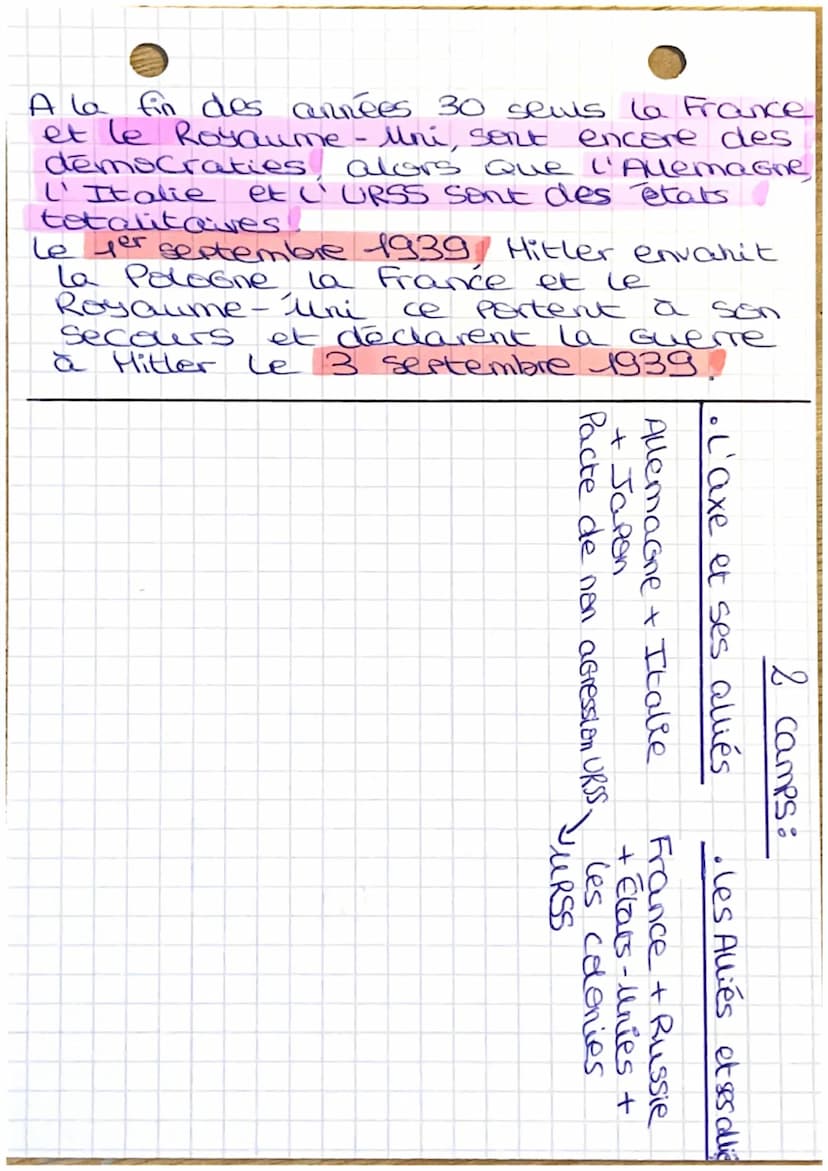 A la fin des années 30 seuls la France
et le Royaume-Uni, sont encore des
démocraties, alors que l'Allemagne,
l'Italie et l'URSS sont des états
totalitaires.
Le 1er septembre 1939, Hitler envahit
la Pologne, la France et le
Royaume-Uni ce portent à son
secours et déclarent la guerre
à Hitler le 3 septembre 1939.
2 camps:
• L'axe et ses alliés
Allemagne + Italie
+ Japon
Pacte de non agression URSS
• Les Alliés et ses allié
France + Russie
+ États-Unies +
les colonies
URSS